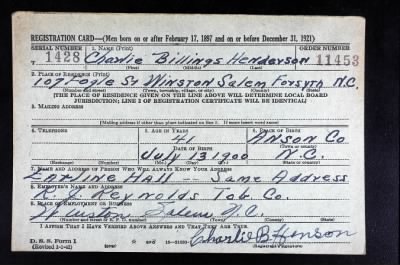 REGISTRATION CARD—(Men born on or after February 17, 1897 and on or before December 31, 1921)
SERIAL NUMBER 1. NAME (Print) ORDER NUMBER
T 1428 Charlie Billings Henderson 11453
(First) (Middle) (Last)
2. PLACE OF RESIDENCE (Print)
107 Fogle St Winston Salem Forsyth N.C.
(Number and street) (Town, township, village, or city) (County) (State)
[THE PLACE OF RESIDENCE GIVEN ON THE LINE ABOVE WILL DETERMINE LOCAL BOARD
JURISDICTION; LINE 2 OF REGISTRATION CERTIFICATE WILL BE IDENTICAL]
3. MAILING ADDRESS
[Mailing address if other than place indicated on line 2. If same insert word same]
4. TELEPHONE 5. AGE IN YEARS 6. PLACE OF BIRTH
41 Anson Co
DATE OF BIRTH (Town or county)
July 13 1900 N.C.
(Exchange) (Number) (Mo.) (Day) (Yr.) (State or country)
7. NAME AND ADDRESS OF PERSON WHO WILL ALWAYS KNOW YOUR ADDRESS
Earline Hall -- Same Address
8. EMPLOYER'S NAME AND ADDRESS
R. J. Reynolds Tob. Co.
9. PLACE OF EMPLOYMENT OR BUSINESS
Winston Salem N.C.
(Number and street or R. F. D. number) (Town) (County) (State)
I AFFIRM THAT I HAVE VERIFIED ABOVE ANSWERS AND THAT THEY ARE TRUE.
D. S. S. Form 1
(Revised 1-1-42) (over) Charlie B Henson
(Registrant's signature)